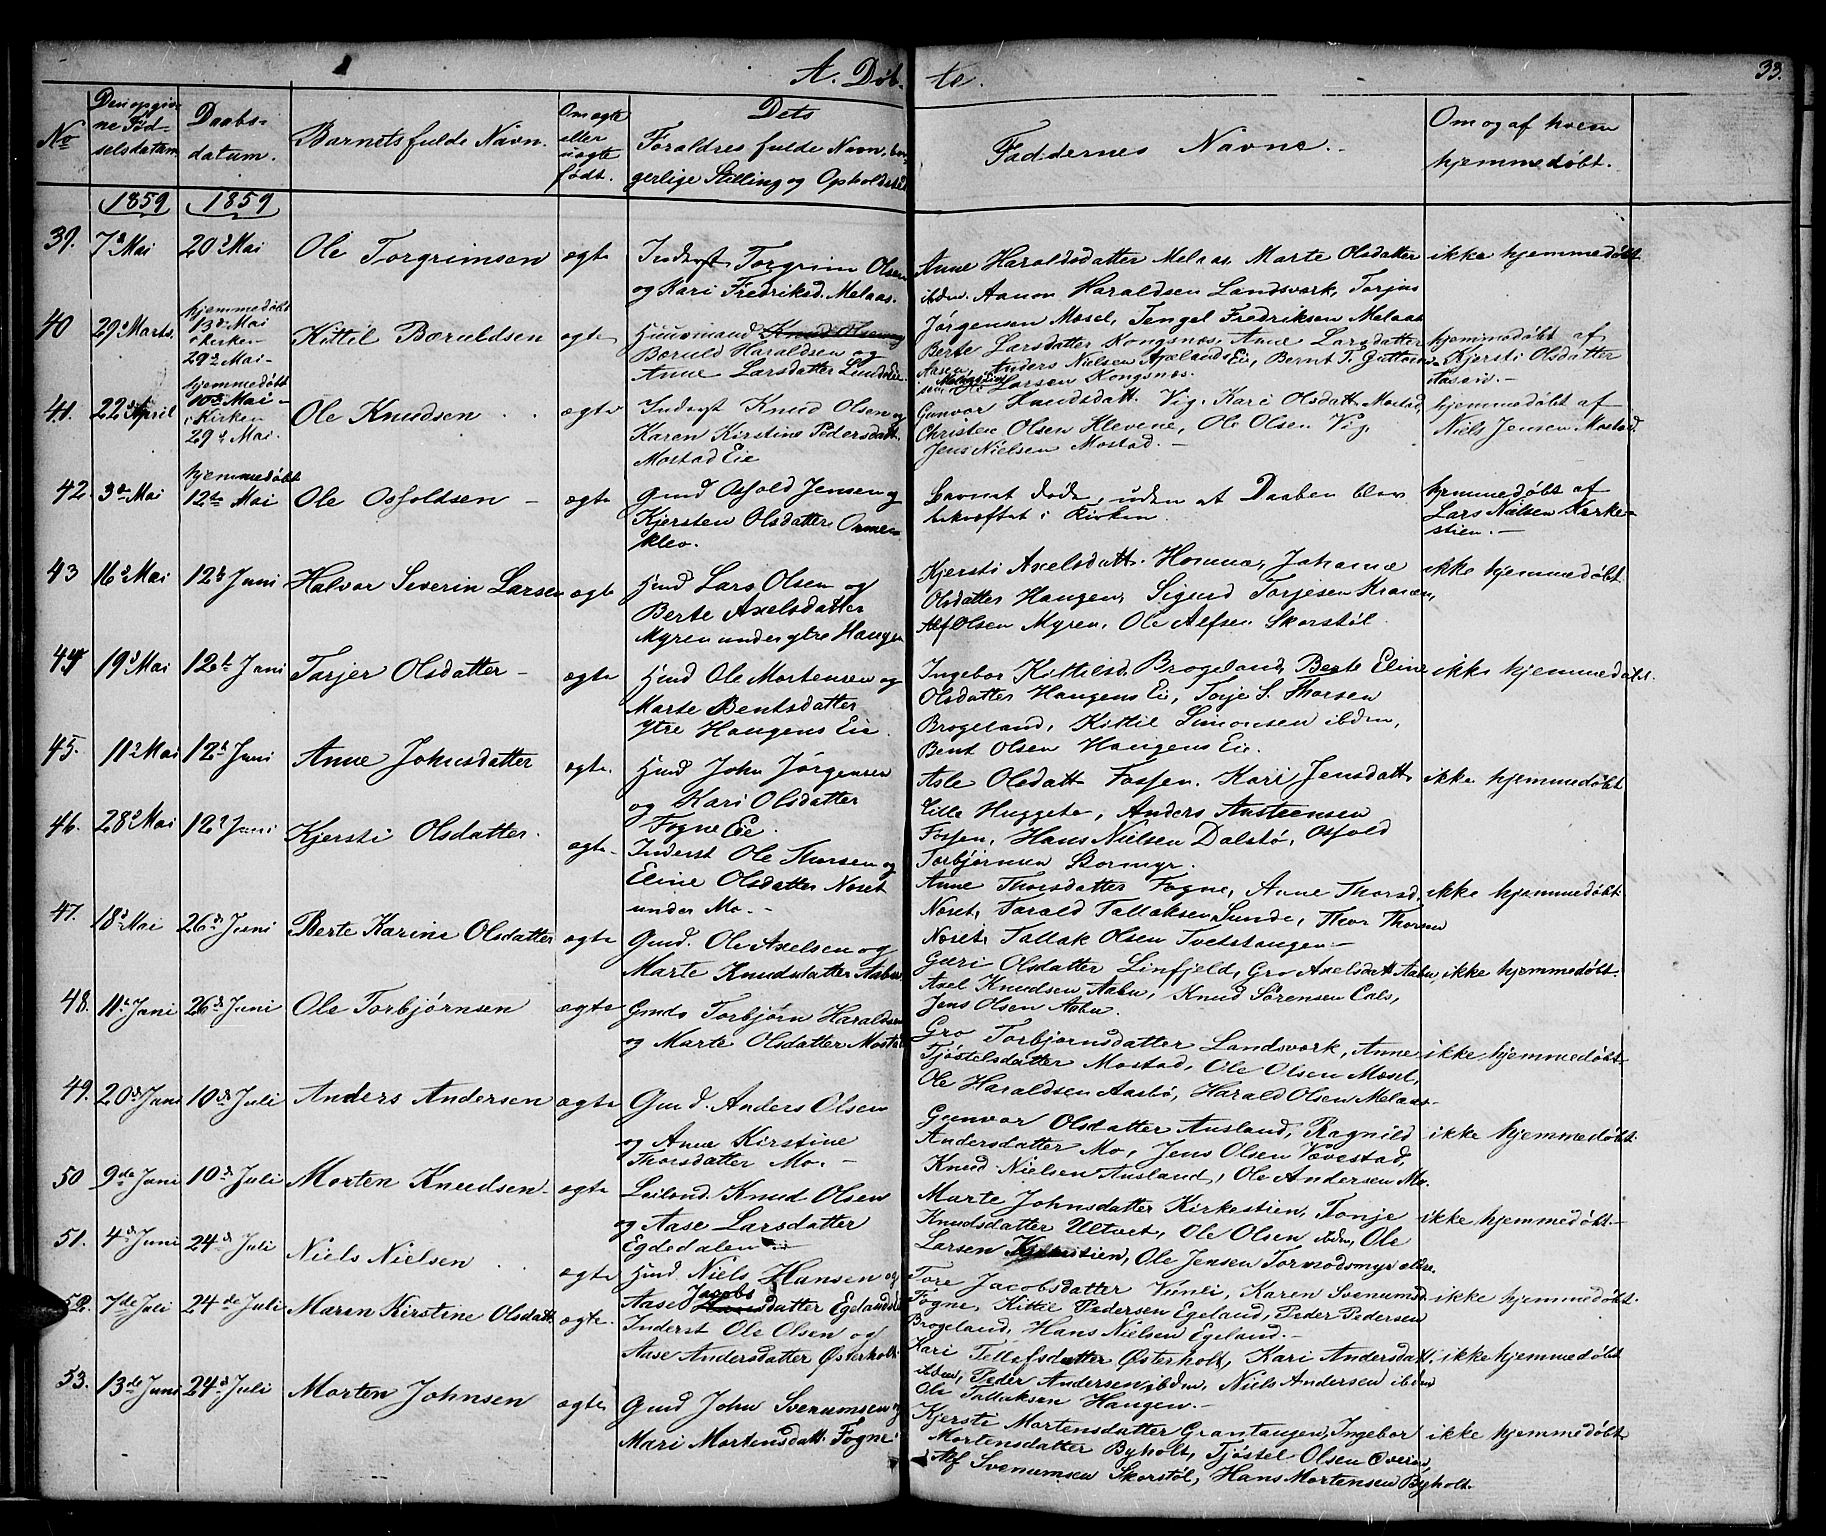 A. Døb- te.
33.
No
Den opgivne Fødselsdatum
Daabs-datum.
Barnets fulde Navn.
Om ægte eller uægte født.
Dets Forældres fulde Navn, borgerlige Stilling og Opholdssted
Faddernes Navne.
Om og af hvem hjemmedøbt.
1859
1859
39. 7d Mai 20d Mai Ole Torgrimsen ægte Inderst Torgrim Olsen
og Kari Fredriksd. Melaas.
Anne Haraldsdatter Melaas, Marte Olsdatter
ibdm. Aanon Haraldsen Landsverk, Torjus
Jørgensen Mosel, Tengel Fredriksen Melaas
ikke hjemmedøbt
40 29d Marts. hjemmedøbt
13d Mai
i Kirken
29d Mai-
Kittil Bæruldsen ægte Huusmand Knud Olsen og
Bæruld Haraldsen og
Anne Larsdatter
Berte Larsdatter Kongsnæs, Anne Larsdatter
Aasen, Anders Nielsen Eie, Bernt T.
Larsen Kongsnæs.
hjemmedøbt af
Kjersti Olsdatter
Aasen.-
41. 22d April hjemmedøbt
10d Mai-
i Kirken
29d Mai.
Ole Knudsen ægte Inderst Knud Olsen og
Karen Kirstine Pedersdatt.
Mostad Eie
Gunvor Knudsdatt. Vig. Kari Olsdatt. Mostad,
Christen Olsen Klevene, Ole Olsen Vig,
Jens Nielsen Mostad.-
hjemmedøbt af
Niels Jensen Mostad.
42. 3d Mai hjemmedøbt
12te Mai Ole Osfoldsen - ægte Gmd Osfold Jensen og
Kjersten Olsdatter Ormeklev.
Barnet døde, uden at Daaben blev
bekræftet i Kirken.
hjemmedøbt af
Lars Nielsen Kirkestien.-
43 16d Mai 12d Juni Halvor Severin Larsen ægte Hmd Lars Olsen og
Berte Axelsdatter
Myren under ytre Haugen
Kjersti Axelsdatt. Homme, Johanne
Olsdatter Haugen, Sigurd Torjesen
Alf Olsen Myren, Ole Alfsen Skorstøl.
ikke hjemmedøbt
44 19d Mai 12te Juni Torjer Olsdatter- ægte Hmd Ole Mortensen og
Marte Bentsdatter
Ytre Haugens Eie.
Ingebor Kittilsd. Brogeland, Berte Eline
Olsdatter Haugens Eie, Torje S. Thorsen
Brogeland, Kittil Simonsen ibdm,
Bent Olsen Haugens Eie.
ikke hjemmedøbt.
45. 11d Mai 12d Juni Anne Johnsdatter ægte. Hmd John Jørgensen
og Kari Olsdatter
Fogne Eie.
Asle Olsdatt. Fosfen. Kari Jensdatt.
Lille Huggeto, Anders Austeensen
Fosfen, Hans Nielsen Dalstø, Osfold
Torbjørnsen Stormyr.
ikke hjemmedøbt
46. 28d Mai 12d Juni Kjersti Olsdatter. ægte. Inderst Ole Thorsen og
Eline Olsdatter Noset
under Mo.-
Anne Thorsdatter Fogne, Anne Thorsd.
Noset, Tarald Tallaksen Sunde, Thor Thorsen
Noset, Tallak Olsen Tvetstangen.-
ikke hjemmedøbt
47. 18d Mai 26d Juni Berte Karine Olsdatter ægte Gmd. Ole Axelsen og
Marte Knudsdatter Aabu
Gæri Olsdatter Linfjeld, Gro Axelsdatt. Aabu,
Axel Knudsen Aabu, Knud Sørensen Cals,
Jens Olsen Aabu.
ikke hjemmedøbt.
48. 11te Juni 26d Juni Ole Torbjørnsen ægte Gmd. Torbjørn Haraldsen
og Marte Olsdatter Mostad
Gro Torbjørnsdatter Landsverk, Anne
Tjøstelsdatter Mostad, Ole Olsen Mosel,
Ole Haraldsen Aasbø, Harald Olsen Melaas-
ikke hjemmedøbt
49. 20de Juni 10de Juli Anders Andersen ægte Gmd. Anders Olsen
og Anne Kirstine
Thorsdatter Mo.-
Gunvor Olsdatter Ausland, Ragnild
Andersdatter Mo, Jens Olsen Vævestad,
Knud Nielsen Ausland, Ole Andersen Mo.
ikke hjemmedøbt.
50 9de Juni 10de Juli Morten Knudsen. ægte Leilænd. Knud Olsen
og Aase Larsdatter
Egdedalen
Marte Johnsdatter Kirkestien, Tonje
Knudsdatter Ultvet, Ole Olsen ibdm, Ole
Larsen Kirkestien, Ole Jensen Tormodsmyr
ikke hjemmedøbt.-
51. 4de Juni 24de Juli Niels Nielsen ægte Hmd. Niels Hansen og
Aase Jacobsdatter Egeland
Tore Jacobsdatter Vimli, Karen Svenumsd.
Fogne, Kittil Pedersen Egeland, Peder Pedersen
Brogeland, Hans Nielsen Egeland.-
ikke hjemmedøbt.
52. 7de Juli 24de Juli Maren Kirstine Olsdatt. ægte. Inderst Ole Olsen og
Aase Andersdatter Østerholt
Kari Tellefsdatter Østerholt, Kari Andersdatt.
ibdm, Peder Andersen ibdm, Niels Andersen ibdm
Ole Tallaksen Haugen.-
ikke hjemmedøbt
53. 13de Juni 24d Juli Morten Johnsen ægte Gmd John Svenumsen og
Mari Mortensdatt. Fogne
Kjersti Mortensdatter Grantangen, Ingebor
Mortensdatter Byholt, Tjøstel Olsen
Alf Svenumsen Skorstøl, Hans Mortensen Byholt.
ikke hjemmedøbt